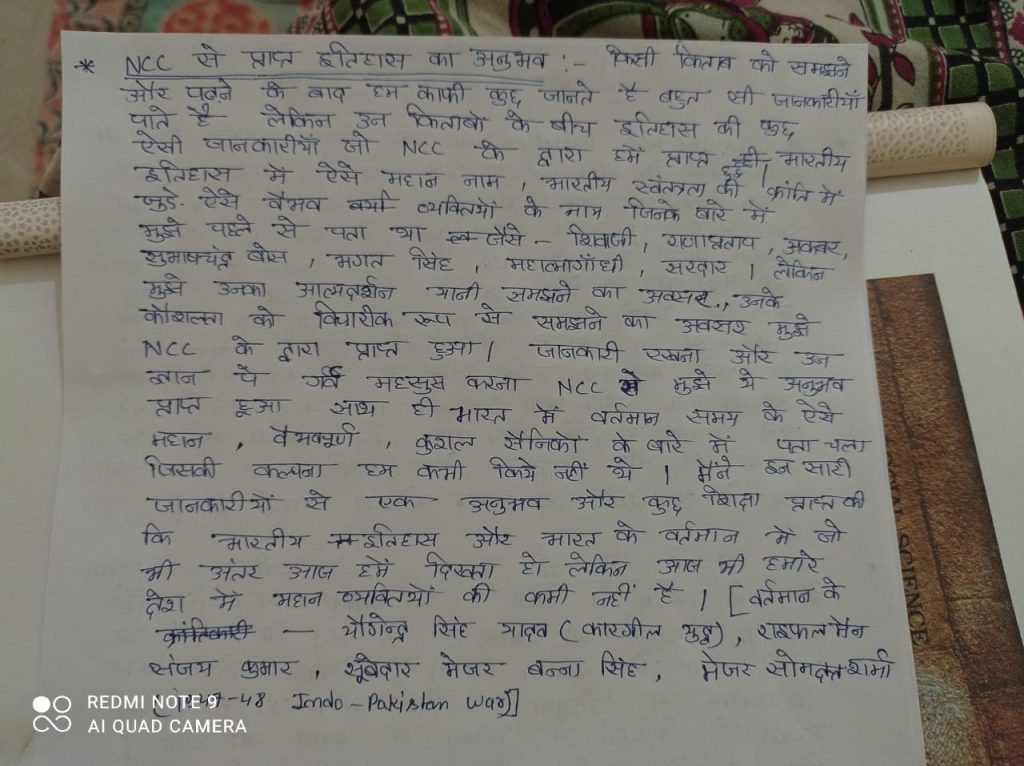 * NCC से प्राप्त इतिहास का अनुभव :- किसी किताब को समझने
और पढ़ने के बाद हम काफी कुछ जानते है बहुत सी जानकारीयाँ
पाते है लेकिन उन किताबों के बीच इतिहास की कुछ
ऐसी जानकारीयाँ जो NCC के द्वारा हमें प्राप्त हुई। भारतीय
इतिहास में ऐसे महान नाम, भारतीय स्वंतत्रता की क्रांति में
जुड़े ऐसे वैभव व्यक्तियों के नाम जिनके बारे में
मुझे पहले से पता था जैसे - शिवाजी, राणाप्रताप, अकबर,
सुभाषचंद्र बोस, भगत सिंह, महात्मागाँधी, सरदार। लेकिन
मुझे उनका आत्मदर्शन यानी समझने का अवसर, उनके
कौशलता को विचारीक रूप से समझने का अवसर मुझे
NCC के द्वारा प्राप्त हुआ। जानकारी रखना और उन
ज्ञान पे गर्व महसुस करना NCC से मुझे ये अनुभव
प्राप्त हुआ साथ ही भारत में वर्तमान समय के ऐसे
महान, वैभवपूर्ण, कुशल सैनिकों के बारे में पता चला
जिसकी कल्पना हम कभी किये नहीं थे। मैंने इन सारी
जानकारीयों से एक अनुभव और कुछ शिक्षा प्राप्त की
कि भारतीय इतिहास और भारत के वर्तमान में जो
भी अंतर आज हमें दिखता हो लेकिन आज भी हमारे
देश में महान व्यक्तियों की कमी नहीं है। [वर्तमान के
क्रांतिकारी — योगेन्द्र सिंह यादव (कारगील युद्ध), राइफल मैन
संजय कुमार, सूबेदार मेजर बन्ना सिंह, मेजर सोमदत्त शर्मा
[1947-48 Indo-Pakistan War)]
REDMI NOTE 9
AI QUAD CAMERA
SCIENCE